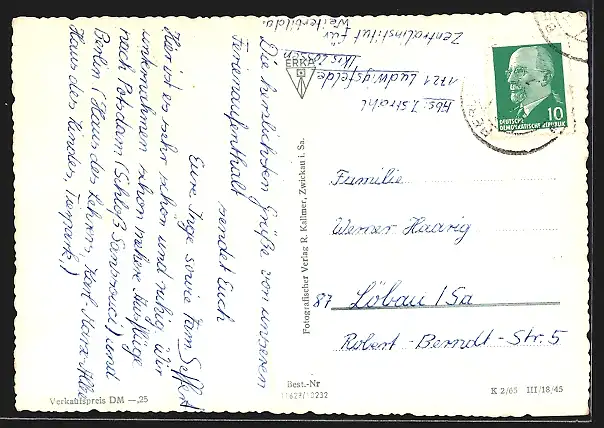 Die herzlichsten Grüße von unserem
Ferienaufenthalt sendet Euch
Eure Inge sowie Fam. Seffert
Hier ist es sehr schön und ruhig. Wir
unternahmen schon mehrere Ausflüge
nach Potsdam (Schloß Sanssouci) und
Berlin (Haus des Lehrers, Karl-Marx-Allee
Haus des Kindes, Tierpark.)
Abs. I.
1721 Ludwigsfelde
Zentralinstitut für
Weiterbildg.
ERKA
DEUTSCHE
DEMOKRATISCHE REPUBLIK
10
Familie
Werner Haarig
87 Löbau/Sa
Robert-Berndt-Str. 5
Fotografischer Verlag R. Kallmer, Zwickau i. Sa.
Verkaufspreis DM —,25
Best.-Nr
K 2/65 III/18/45